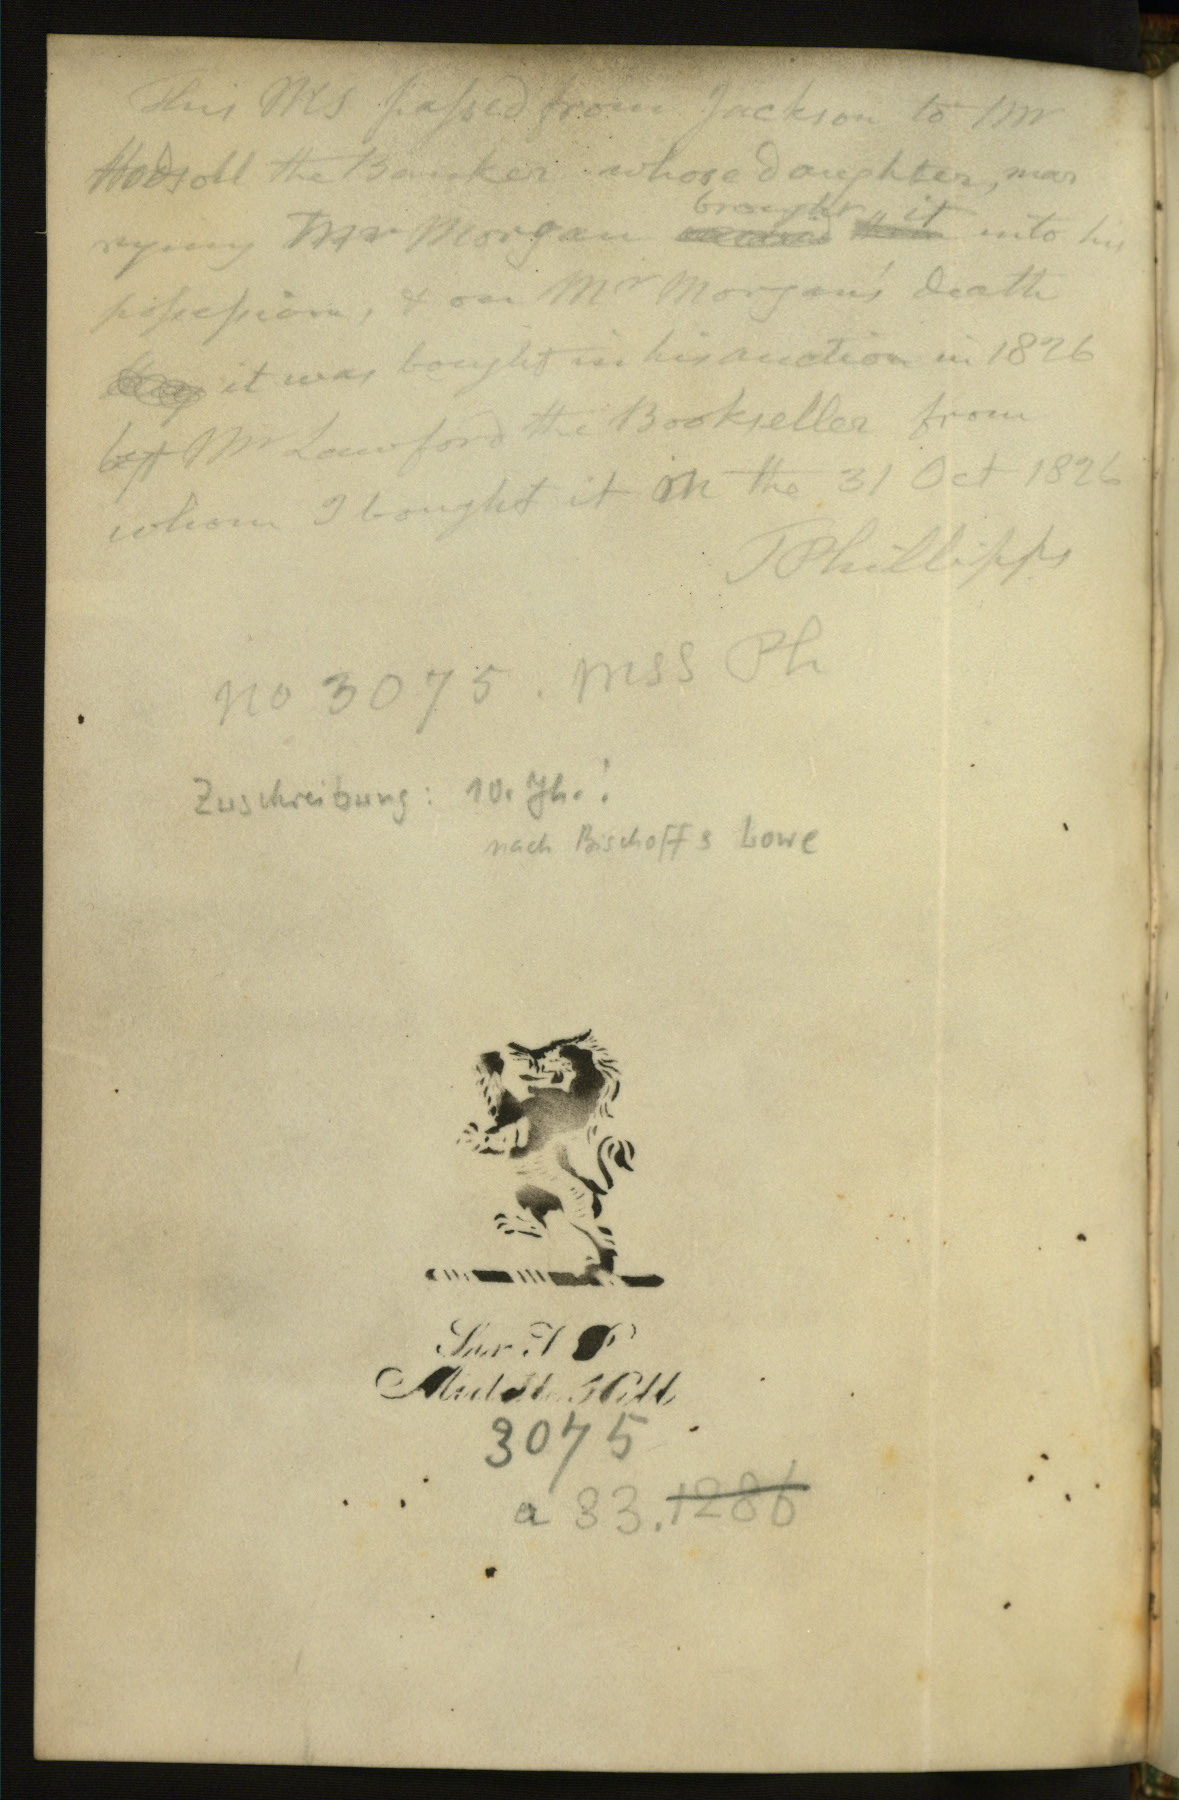 This MS passed from Jackson to Mr
Hodsoll the Banker whose daughter, mar
rying Mr Morgan brought it into his
possession, & on Mr Morgan's death
it was bought in his auction in 1826
by Mr Lawford the Bookseller from
whom I bought it on the 31 Oct 1826
TPhillipps
no 3075. MSS Ph
Zuschreibung: 10. Jh.!
nach Bischoff & Lowe
Sir T P
Middle Hill
3075
a 83. 1286